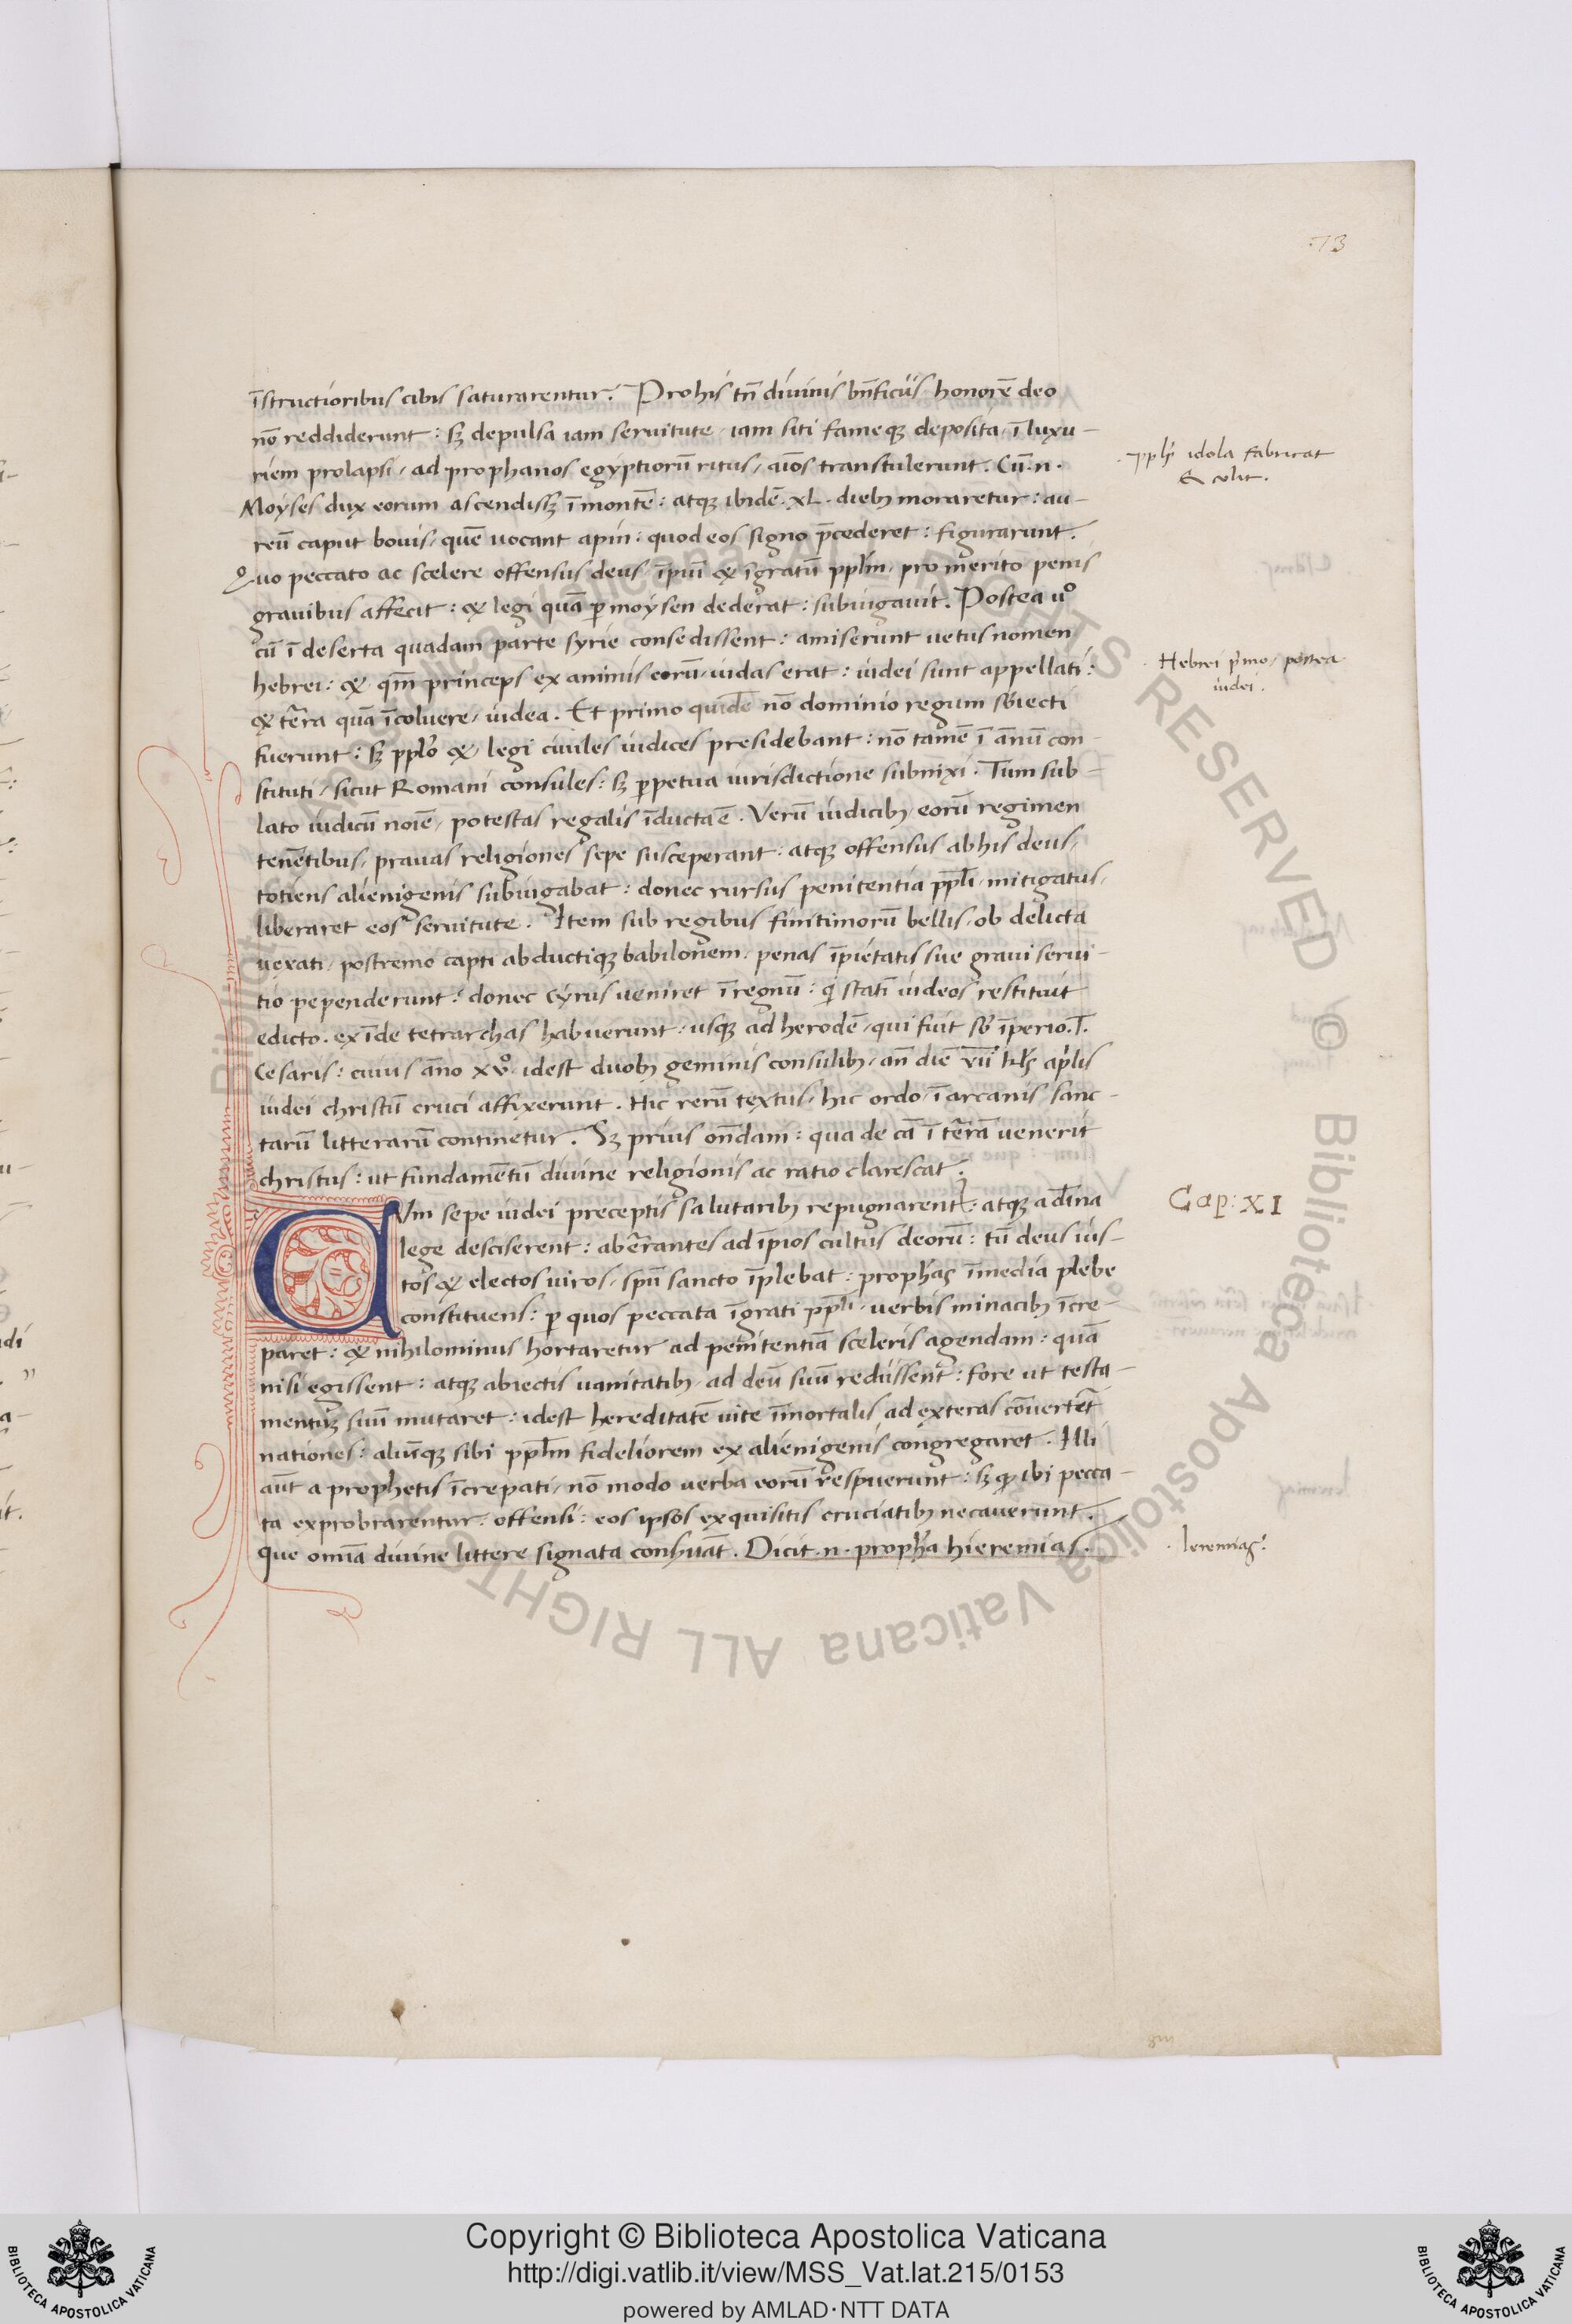 73
īstructioribus cibis saturarentur. Pro his tn̄ divinis bn̄ficiis honorē deo
nō reddiderunt: sꝫ depulsa iam servitute, iam siti fameqꝫ deposita, ī luxu-
riem prolapsi, ad prophanos egyptiorū ritus, aīos transtulerunt. Cū .n.
Moyses dux eorum ascendissꝫ ī montē: atqꝫ ibidē .XL. diebꝫ moraretur: au-
reū caput bovis, quē vocant apin: quod eos signo p̄cederet: figurarunt.
Quo peccato ac scelere offensus deus, īpiū & īgratū pplm̄, pro merito penis
gravibus affecit: & legi quā ꝑ moysen dederat: subiugavit. Postea vº
cū ī deserta quadam parte syrie consedissent: amiserunt vetus nomen
hebrei: & qm̄ princeps examinis eorū iudas erat: iudei sunt appellati:
& terra quā īcoluere, iudea. Et primo quidē nō dominio regum sb̄iecti
fuerunt: sꝫ pplō & legi civiles iudices presidebant: nō tamē ī annū con-
stituti, sicut Romani consules: sꝫ ꝑpetua iurisdictione subnixi. Tum sub-
lato iudicū noīe, potestas regalis īducta ē. Verū iudicibꝫ eorū regimen
tenētibus, pravas religiones sepe susceperant: atqꝫ offensus ab his deus,
totiens alienigenis subiugabat: donec rursus penitentia ppl̄i, mitigatus,
liberaret eos servitute. Item sub regibus finitimorū bellis, ob delicta
vexati, postremo capti abductiqꝫ babilonem, penas īpietatis sue gravi servi-
tio pependerunt: donec Cyrus veniret ī regnū: qi statī iudeos restituit
edicto. ex īde tetrarchas habuerunt, usqꝫ ad herodē, qui fuit sb̄ īperio .T.
Cesaris: cuius āno XVº. idest duobꝫ geminis consulibꝫ, an̄ diē VII kl̄s ap̄lis
iudei christū cruci affixerunt. Hic rerū textus, hic ordo, ī arcanis sanc-
tarū litterarū continetur. Sꝫ prius on̄dam: qua de cā ī terrā venerit
christus: ut fundamētū divine religionis ac ratio clarescat.
Cap: XI
CVm sepe iudei preceptis salutaribꝫ repugnarent: atqꝫ a dīna
lege desciserent: aberrantes ad īpios cultus deorū: tū deus ius-
tos & electos viros, spū sancto īplebat: prophās ī media plebe
constituens: ꝑ quos peccata īgrati ppl̄i, verbis minacibꝫ īcre-
paret: & nihilominus hortaretur ad penitentiā sceleris agendam: quā
nisi egissent: atqꝫ abiectis vanitatibꝫ, ad deū suū rediissent: fore ut testa-
mentuꝫ suū mutaret: idest hereditatē vite īmortalis ad exteras cōvertēt
nationes: aliūqꝫ sibi pplm̄ fideliorem ex alienigenis congregaret. Illi
aūt a prophetis īcrepati, nō modo verba eorū respuerunt: sꝫ ꝙ ibi pecca-
ta exprobrarentur: offensi: eos ipsos exquisitis cruciatibꝫ necaverunt.
Que omīa divine littere signata conṣvāt. Dicit .n. prophā hieremias.
pplˢ idola fabricat
& colit.
Hebrei pīmo, postea
iudei.
Ieremias:
Biblioteca Apostolica Vaticana ALL RIGHTS RESERVED © Biblioteca Apostolica Vaticana ALL RIGHTS
BIBLIOTECA APOSTOLICA VATICANA
Copyright © Biblioteca Apostolica Vaticana
http://digi.vatlib.it/view/MSS_Vat.lat.215/0153
powered by AMLAD·NTT DATA
BIBLIOTECA APOSTOLICA VATICANA